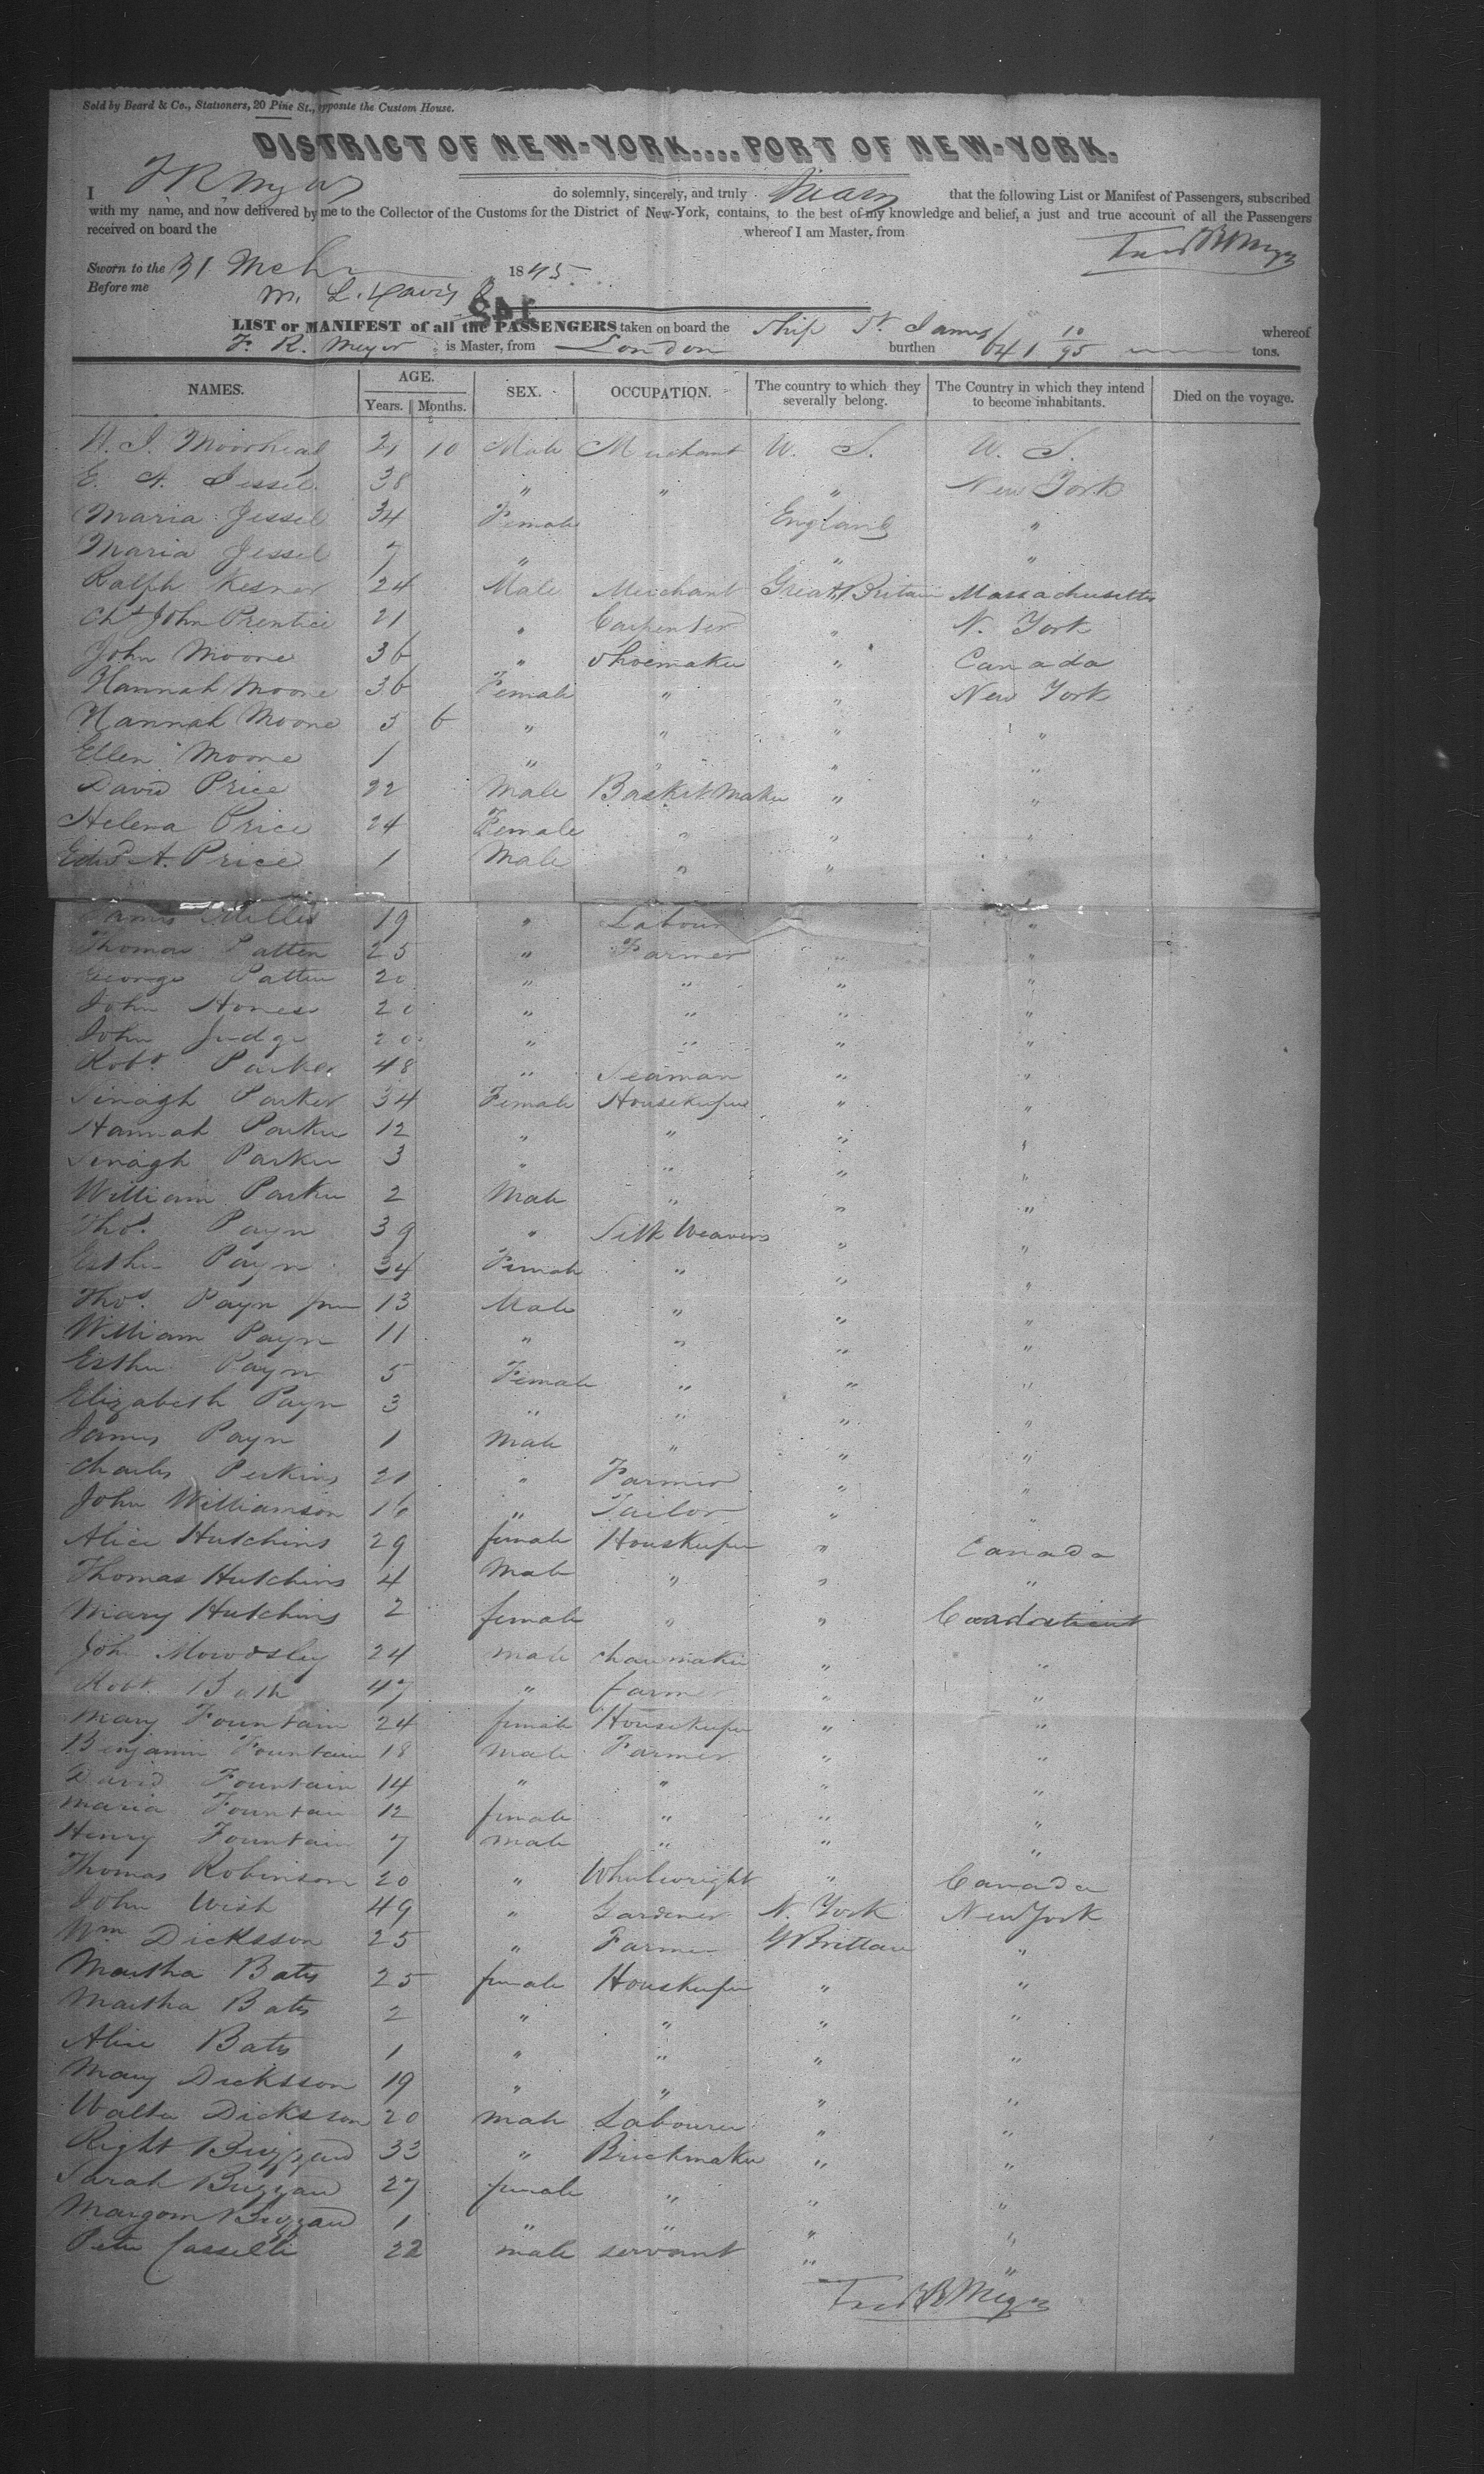 Sold by Beard & Co., Stationers, 20 Pine St., opposite the Custom House.
DISTRICT OF NEW-YORK....PORT OF NEW-YORK.
I F R Myer do solemnly, sincerely, and truly swear that the following List or Manifest of Passengers, subscribed
with my name, and now delivered by me to the Collector of the Customs for the District of New-York, contains, to the best of my knowledge and belief, a just and true account of all the Passengers
received on board the whereof I am Master, from
Sworn to the 31 Mch 1845
Before me M. L. Davis
LIST or MANIFEST of all the PASSENGERS taken on board the Ship St. James whereof
F. R. Meyer is Master, from London burthen 641 10/95 tons.
NAMES. AGE. SEX. OCCUPATION. The country to which they severally belong. The Country in which they intend to become inhabitants. Died on the voyage.
Years. Months.
Moorhead 21 10 Male Merchant U. S. U. S.
E. A. Jessel 38 " " " New York
Maria Jessel 34 Female England "
Maria Jessel 7 " " "
Ralph Kesner 24 Male Merchant Great Britain Massachusetts
Chs John Prentice 21 " Carpenter " N. York
John Moore 36 " Shoemaker " Canada
Hannah Moore 36 Female " " New York
Hannah Moore 3 6 " " " "
Ellen Moore 1 " " " "
David Price 22 Male Basket Maker " "
Helena Price 24 Female " " "
Edwd A. Price 1 Male " "
James Willis 19 " Labour "
Thomas Patten 25 " Farmer " "
George Patten 20 " " " "
John Hones 20 " " " "
John Judge 20 " " " "
Robt Parker 48 " Seaman " "
Sinagh Parker 34 Female Housekeeper " "
Hannah Parker 12 " " " "
Sinagh Parker 3 " " " "
William Parker 2 Male " " "
Thos. Payn 39 " Silk Weavers " "
Esther Payn 34 Female " " "
Thos. Payn jun 13 Male " " "
William Payn 11 " " " "
Esther Payn 5 Female " " "
Elizabeth Payn 3 " " " "
James Payn 1 Male " " "
Charles Perkins 21 " Farmer " "
John Williamson 16 " Tailor " "
Alice Hutchins 29 female Houskeeper " Canada
Thomas Hutchins 4 Male " " "
Mary Hutchins 2 female " "
John Mowdsley 24 male chairmaker " "
Robt. Both 47 " farmer " "
Mary Fountain 24 female Housekeeper " "
Benjamin Fountain 18 male Farmer " "
David Fountain 14 " " " "
Maria Fountain 12 female " " "
Henry Fountain 7 male " " "
Thomas Robinson 20 " Whelwright " Canada
John Wish 49 " Gardener N. York New York
Wm Dicksson 25 " Farmer G Brittain "
Martha Bates 25 female Houskeeper " "
Martha Bates 2 " " " "
Alice Bates 1 " " " "
Mary Dicksson 19 " " " "
Walter Dicksson 20 male Labourer " "
Right Buzzard 33 " Brickmaker " "
Sarah Buzzard 27 female " " "
Buzzard 1 " " " "
Peter Casselli 22 male servant " "